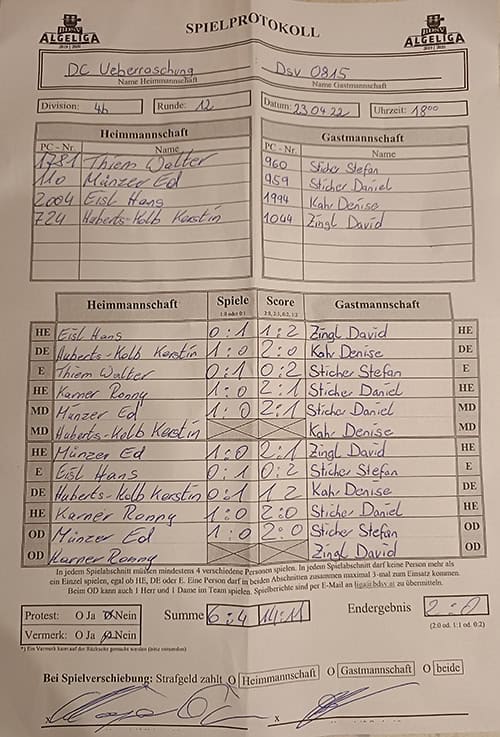 BDSV ALGELIGA 2019 | 2020 SPIELPROTOKOLL BDSV ALGELIGA 2019 | 2020
DC Ueberraschung Dsv 0815
Name Heimmannschaft Name Gastmannschaft
Division: 4b Runde: 12 Datum: 23.04.22 Uhrzeit: 18 00
Heimmannschaft Gastmannschaft
PC - Nr. Name PC - Nr. Name
1781 Thiem Walter 960 Sticher Stefan
110 Münzer Ed 959 Sticher Daniel
2004 Eisl Hans 1994 Kahr Denise
724 Huberts-Kolb Kerstin 1044 Zingl David
Heimmannschaft Spiele Score Gastmannschaft
1:0 oder 0:1 2:0, 2:1, 0:2, 1:2
HE Eisl Hans 0:1 1:2 Zingl David HE
DE Huberts-Kolb Kerstin 1:0 2:0 Kahr Denise DE
E Thiem Walter 0:1 0:2 Sticher Stefan E
HE Karner Ronny 1:0 2:1 Sticher Daniel HE
MD Münzer Ed 1:0 2:1 Sticher Daniel MD
MD Huberts-Kolb Kerstin Kahr Denise MD
HE Münzer Ed 1:0 2:1 Zingl David HE
E Eisl Hans 0:1 0:2 Sticher Stefan E
DE Huberts-Kolb Kerstin 0:1 1 2 Kahr Denise DE
HE Karner Ronny 1:0 2:0 Sticher Daniel HE
OD Münzer Ed 1:0 2:0 Sticher Stefan OD
OD Karner Ronny Zingl David OD
In jedem Spielabschnitt müssen mindestens 4 verschiedene Personen spielen. In jedem Spielabschnitt darf keine Person mehr als
ein Einzel spielen, egal ob HE, DE oder E. Eine Person darf in beiden Abschnitten zusammen maximal 3-mal zum Einsatz kommen.
Beim OD kann auch 1 Herr und 1 Dame im Team spielen. Spielberichte sind per E-Mail an liga@bdsv.at zu übermitteln.
Protest: O Ja O Nein Summe 6:4 14:11 Endergebnis 2:0
Vermerk: O Ja O Nein (2:0 od. 1:1 od. 0:2)
*) Ein Vermerk kann auf der Rückseite gemacht werden (bitte umwenden)
Bei Spielverschiebung: Strafgeld zahlt O Heimmannschaft O Gastmannschaft O beide
x x